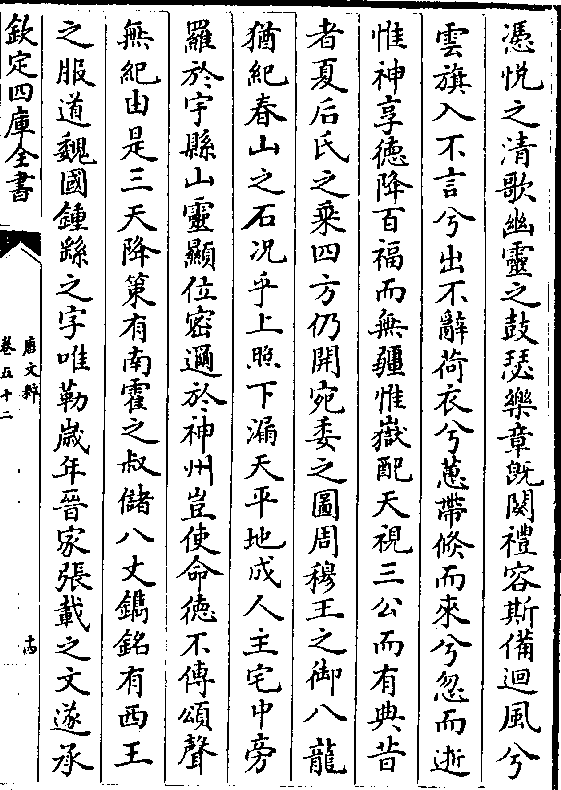 憑悅之清歌幽靈之鼓瑟樂章既闋禮容斯備迴風兮
雲旗入不言兮出不辭荷衣兮蕙帶倏而來兮忽而逝
惟神享德降百福而無疆惟嶽配天視三公而有典昔
者夏后氏之乗四方仍開宛委之圖周穆王之御八龍
猶紀春山之石况乎上照下漏天平地成人主宅中旁
羅於宇縣山靈顯位密邇於神州豈使命德不傳頌聲
無紀由是三天降策有南霍之叔儲八丈鐫銘有西王
之服道魏國鍾繇之字唯勒嵗年晉家張載之文遂承
欽定四庫全書
唐文粹
卷五十二
十四